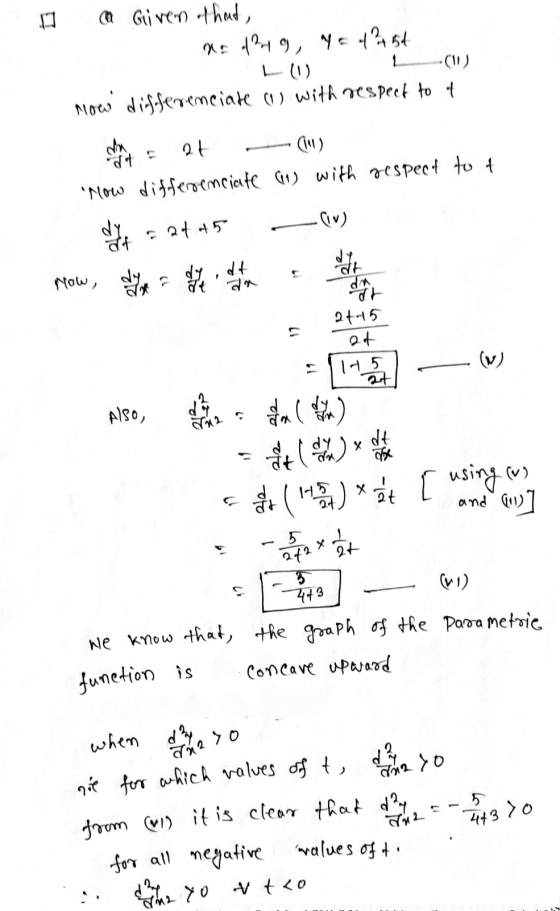 □ (a) Given that,
x = t²+9, y = t²+5t
(I) (II)
Now differenciate (I) with respect to t
dx/dt = 2t — (III)
Now differenciate (II) with respect to t
dy/dt = 2t+5 — (IV)
Now, dy/dx = dy/dt · dt/dx = (dy/dt)/(dx/dt)
= (2t+5)/2t
= 1+5/2t — (V)
Also, d²y/dx² = d/dx (dy/dx)
= d/dt (dy/dx) × dt/dx
= d/dt (1+5/2t) × 1/2t [using (V)
and (III)]
= -5/2t² × 1/2t
= -5/4t³ — (VI)
We know that, the graph of the parametric
function is concave upward
when d²y/dx² > 0
ie for which values of t, d²y/dx² > 0
from (VI) it is clear that d²y/dx² = -5/4t³ > 0
for all negative values of t.
∴ d²y/dx² > 0 ∀ t < 0